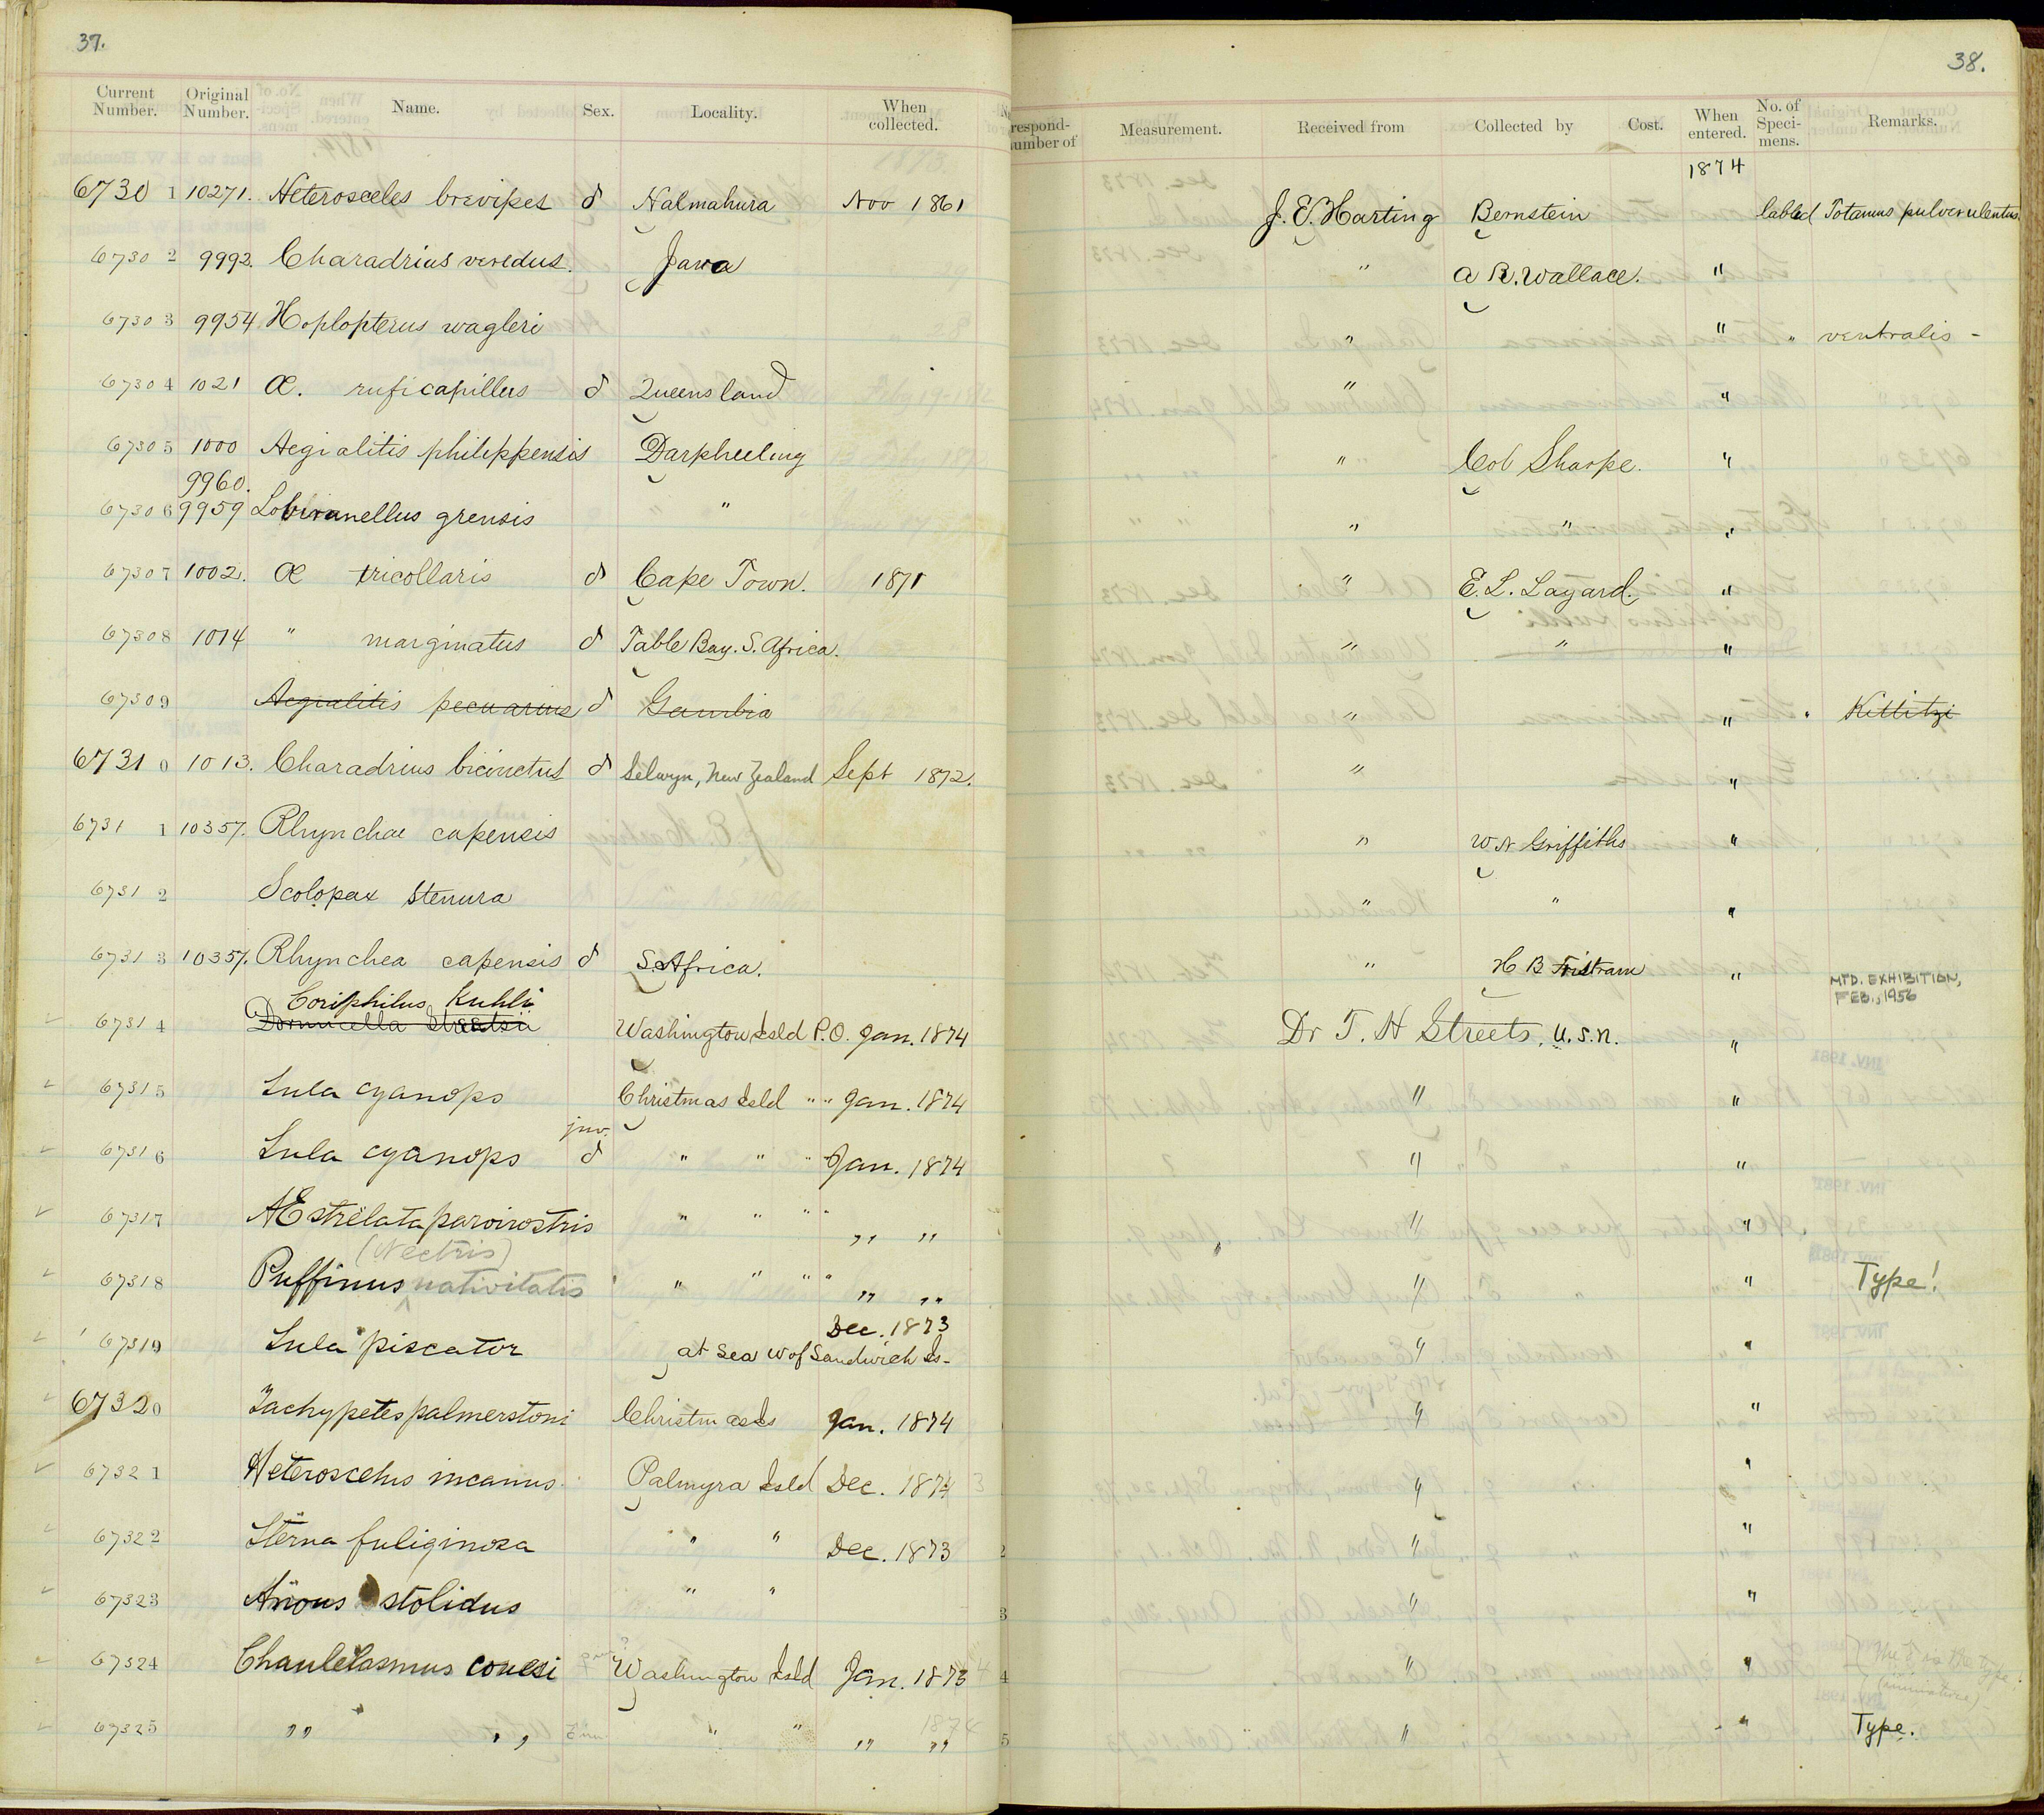 37.
38.
Current Number. Original Number. Name. Sex. Locality. When collected.
respond- number of Measurement. Received from Collected by Cost. When entered. No. of Speci- mens. Remarks.
1874
67301 10271. Heterosceles brevipes ♂ Halmahura Nov 1861 J. E. Harting Bernstein labld Totanus pulverulentus
67302 9992. Charadrius veredus. Java " A R. Wallace. "
67303 9954 Hoplopterus wagleri " " " ventralis -
67304 1021 Æ. ruficapillus ♂ Queensland " "
67305 1000 Aegialitis philippensis Darpheeling " Col Sharpe. "
9960.
67306 9959 Lobivanellus grensis " " " " "
67307 1002. Æ tricollaris ♂ Cape Town. 1871 " E. L. Layard. "
67308 1014 " marginatus ♂ Table Bay. S. Africa. " " "
67309 Aegialitis pecuarius ♂ Gambia " " " Kittitzi
67310 1013. Charadrius bicinctus ♂ Selwyn, New Zealand Sept 1872. " "
67311 10357. Rhynchae capensis " W N Griffiths "
67312 Scolopax stenura " " "
67313 10357. Rhynchea capensis ♂ S. Africa. " H B Tristram "
MTD. EXHIBITION, FEB., 1956
Coriphilus Kuhli
67314 Domicella Washington Isld P.O. Jan. 1874 Dr T. H Streets, U.S.N. "
67315 Sula cyanops Christmas Isld " " Jan. 1874 " "
juv.
67316 Sula cyanops ♂ " " " Jan. 1874 " "
67317 AEstrelata parvirostris " " " " " " " "
(Nectris)
67318 Puffinus nativitatis " " " " " " " " Type!
Dec. 1873
67319 Sula piscator at sea W of Sandwich Is- "
67320 Tachypetes palmerstoni Christmas Is Jan. 1874 " "
67321 Heteroscelus incanus. Palmyra Isld Dec. 1874 3 " "
67322 Sterna fuliginosa " " Dec. 1873 " "
67323 Anous stolidus " " " "
67324 Chaulelasmus couesi Washington Isld Jan. 1873 4 " " The ♂ is the type (immature)
1874
67325 " " " " " " " " Type.